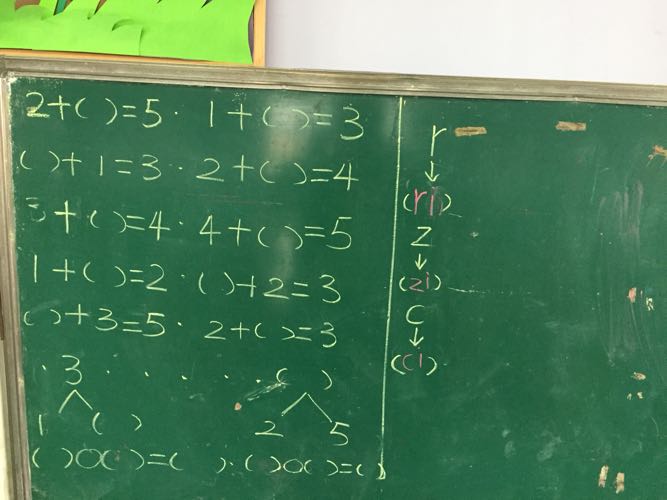 2+( )=5 · 1+( )=3
( )+1=3 · 2+( )=4
3+( )=4 · 4+( )=5
1+( )=2 · ( )+2=3
( )+3=5 · 2+( )=3
· 3 · · · · · ( )
1 ( ) 2 5
( )○( )=( ) · ( )○( )=( )
r
↓
(ri)
z
↓
(zi)
c
↓
(ci)